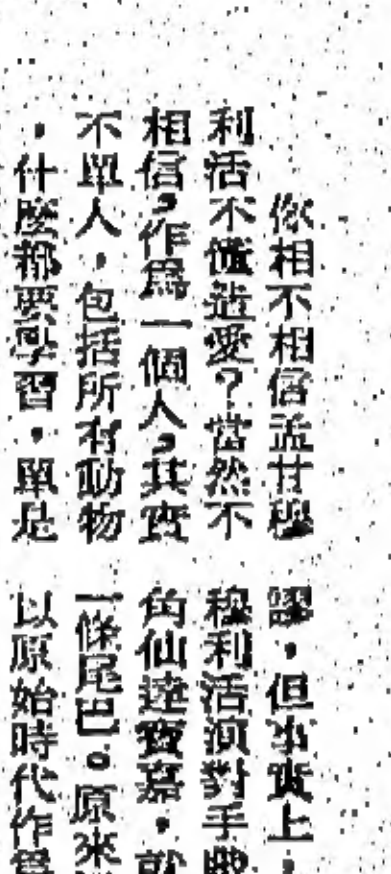 你相不相信孟甘穆
利活不懂造愛？當然不
相信，作爲一個人，其實
不單人，包括所有動物
，什麽都要學習，單是
謬，但事實上，
穆利活演對手戲
角仙達寶嘉，就
一條尾巴。原來
以原始時代作爲